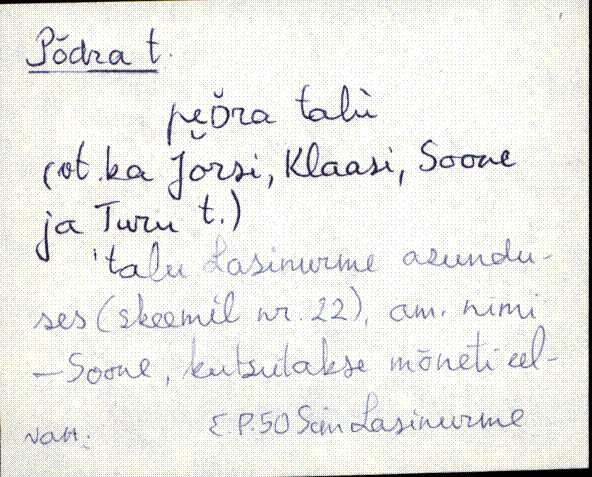 Põdra t.
talù
(vt. ka Jõrsi, Klaasi, Soone
ja Turu t.)
talu Lasinurme asundu-
ses (skeemil nr. 22), am. nimi
– Soone, kutsutakse mõneti eel-
E.P. 50 Sim Lasinurme